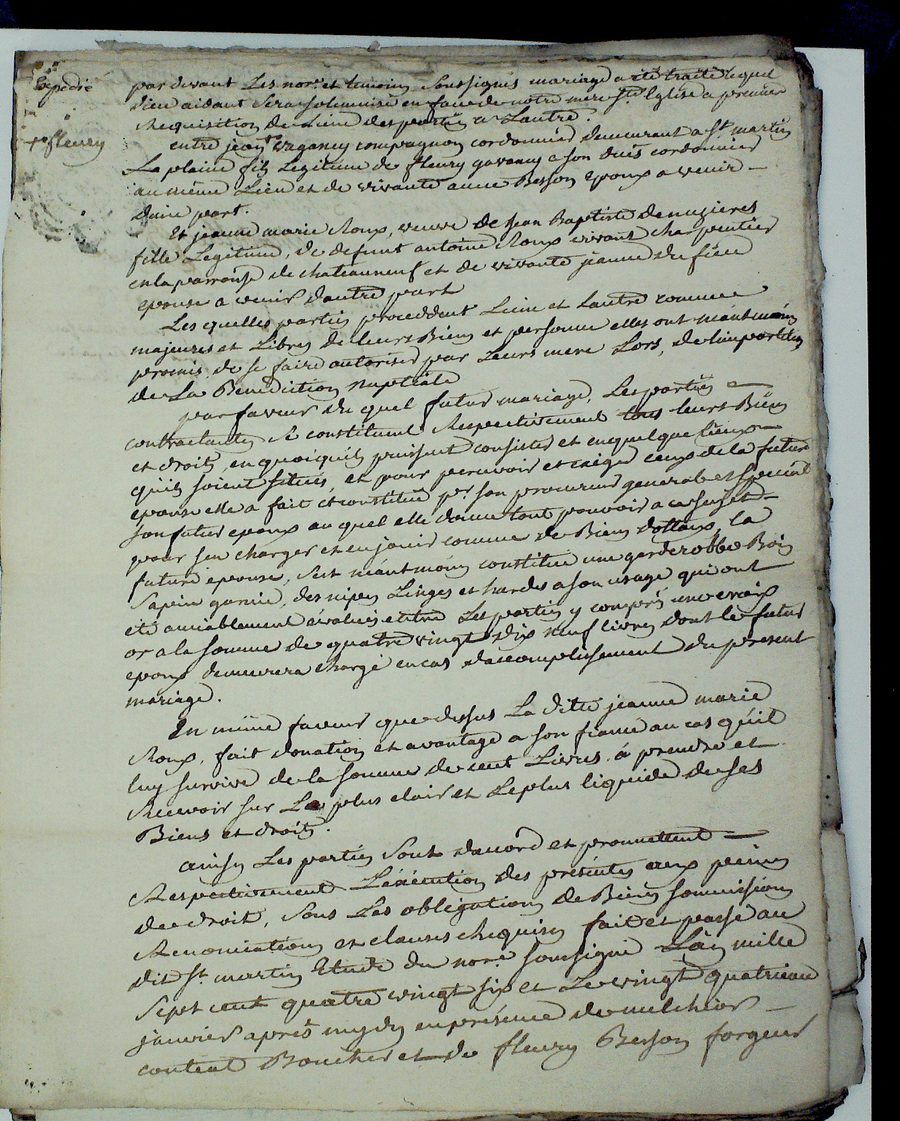 Expedié
+ fleury
par devant Les nore. et temoins Soussignés mariage a été traité lequel
dieu aidant Sera solemnisé en face de notre mere Ste. Eglise a premiere
Requisition de Lune des parties a Lautre,
entre jean + vaganay compagnon cordonnier demeurant a St. martin
La plaine fils Legitime de fleury gavanay a son duis cordonnier
au même Lieu et de vivante anne Besson epoux a venir
dune part.
Et jeanne marie Roux, veuve de Jean Baptiste denuzieres
fille Legitime, de defunt antoine Roux vivant charpentier
en la parroisse de chateauneuf et de vivante jeanne du fieu
epouse a venir dautre part
Les quelles parties procedent Lune et Lautre comme
majeures et Libres de leurs Biens et personne elles ont néantmoins
promis de se faire autoriser par Leurs mere Lors, de limpartition
de La Benediction nuptiale
par faveur du quel futur mariage, Les parties
contractantes se constituent Respectivement tous leurs Biens
et droits, en quoi quils puissent consister et en quelque lieux
quils soient situés, et pour percevoir et exiger ceux de la future
epouse elle a fait et constitué pr. son procureur general et special
son futur epoux au quel elle donne tout pouvoir a ce sujet
pour sen charger et en jouir comme de Biens dottaux, la
future epouse, sest néantmoins constitué une garderobbe Bois
Sapein garnie, des nipes Linges et hardes a son usage qui ont
eté amiablement évalués entre Les parties y compris une croix
or a la somme de quatre vingt dix neuf livres dont le futur
epoux demeurera chargé en cas daccomplissement du present
mariage.
En même faveur que dessus La ditte jeanne marie
Roux, fait donation et avantage a son fiancé au cas quil
luy survive de la somme de cent Livres, à prendre et
Recevoir sur Le plus clair et Le plus liquide de ses
Biens et droits.
ainsy Les parties Sont daccord et promettent
Respectivement Léxécution des présentes aux peines
de droit, sous Les obligations de Biens soumissions
Renonciations et clauses Requises fait et passé au
dit St. martin Etude du nore. soussigné Lan mille
Sept cent quatre vingt six et Le vingt quatrieme
janvier après mydy en présence de melchior
content Boucher et de fleury Besson forgeur